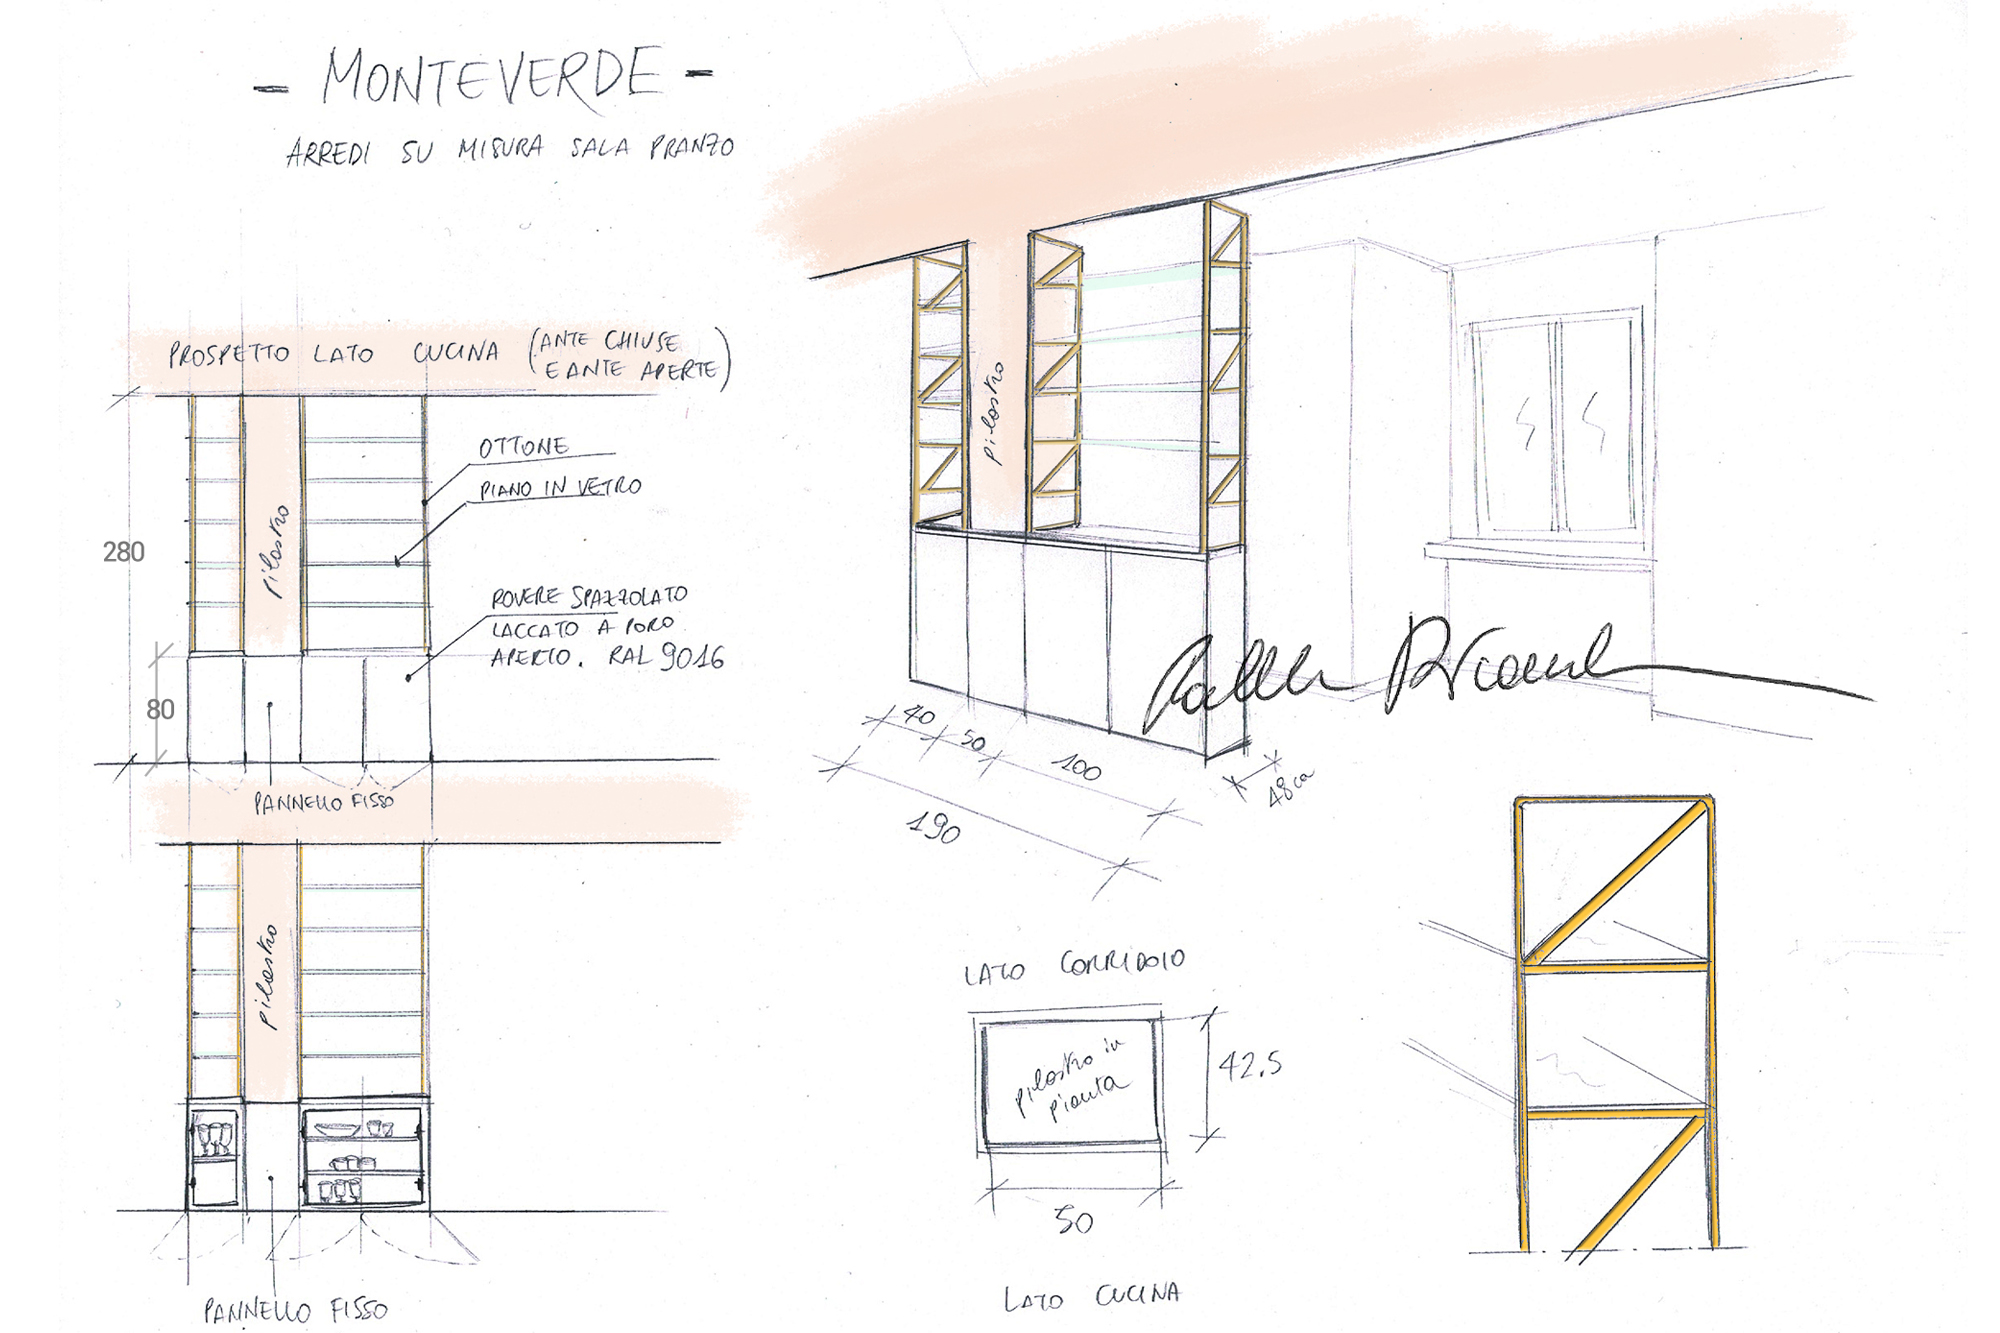 - MONTEVERDE -
ARREDI SU MISURA SALA PRANZO
PROSPETTO LATO CUCINA (ANTE CHIUSE
E ANTE APERTE)
OTTONE
PIANO IN VETRO
pilastro
280
ROVERE SPAZZOLATO
LACCATO A PORO
APERTO. RAL 9016
80
PANNELLO FISSO
pilastro
PANNELLO FISSO
pilastro
40
50
100
190
48 ca
LATO CORRIDOIO
pilastro in
pianta
42.5
50
LATO CUCINA